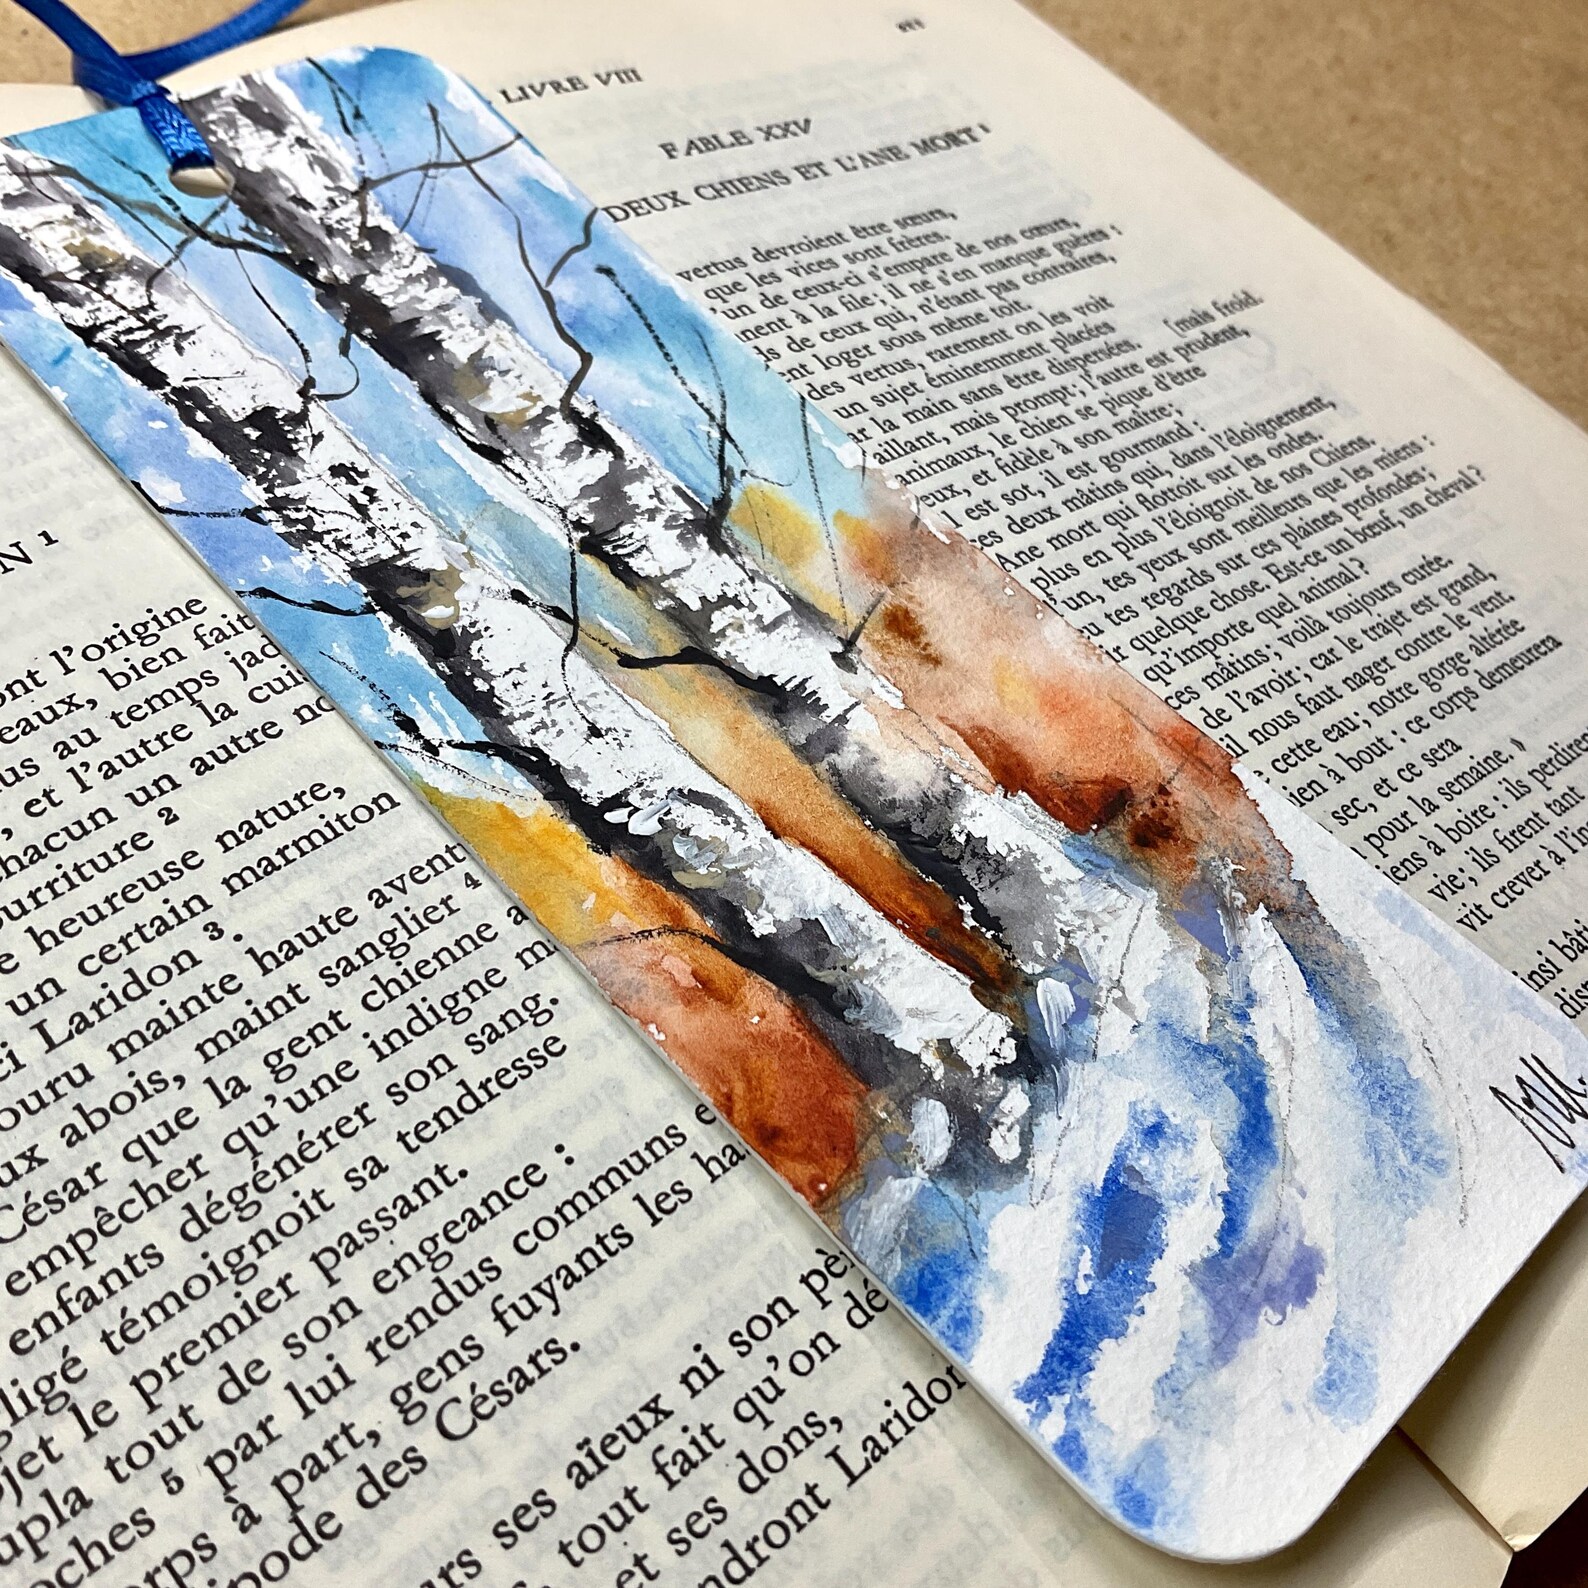 N 1
ont l'origine
eaux, bien fait
us au temps jad
, et l'autre la cuis
chacun un autre no
ourriture 2
e heureuse nature,
un certain marmiton
ci Laridon 3.
ouru mainte haute avent
ux abois, maint sanglier 4
César que la gent chienne a
empêcher qu'une indigne m
enfants dégénérer son sang.
ligé témoignoit sa tendresse
jet le premier passant.
upla tout de son engeance :
oches 5 par lui rendus communs e
orps à part, gens fuyants les ha
ipode des Césars.
rs ses aïeux ni son pè
, tout fait qu'on dé
et ses dons,
ndront Laridon
LIVRE VIII
FABLE XXV
DEUX CHIENS ET L'ANE MORT 1
vertus devroient être sœurs,
que les vices sont frères.
'un de ceux-ci s'empare de nos cœurs,
nent à la file ; il ne s'en manque guères :
ds de ceux qui, n'étant pas contraires,
ent loger sous même toit.
des vertus, rarement on les voit
un sujet éminemment placées
ar la main sans être dispersées. [mais froid.
aillant, mais prompt ; l'autre est prudent,
animaux, le chien se pique d'être
eux, et fidèle à son maître ;
l est sot, il est gourmand :
ces deux mâtins qui, dans l'éloignement,
Ane mort qui flottoit sur les ondes.
plus en plus l'éloignoit de nos Chiens.
'un, tes yeux sont meilleurs que les miens :
u tes regards sur ces plaines profondes ;
r quelque chose. Est-ce un bœuf, un cheval ?
qu'importe quel animal ?
ces mâtins ; voilà toujours curée.
de l'avoir ; car le trajet est grand,
il nous faut nager contre le vent.
cette eau ; notre gorge altérée
ien à bout : ce corps demeurera
sec, et ce sera
pour la semaine. »
iens à boire : ils perdirent
vie ; ils firent tant
vit crever à l'in
insi bât